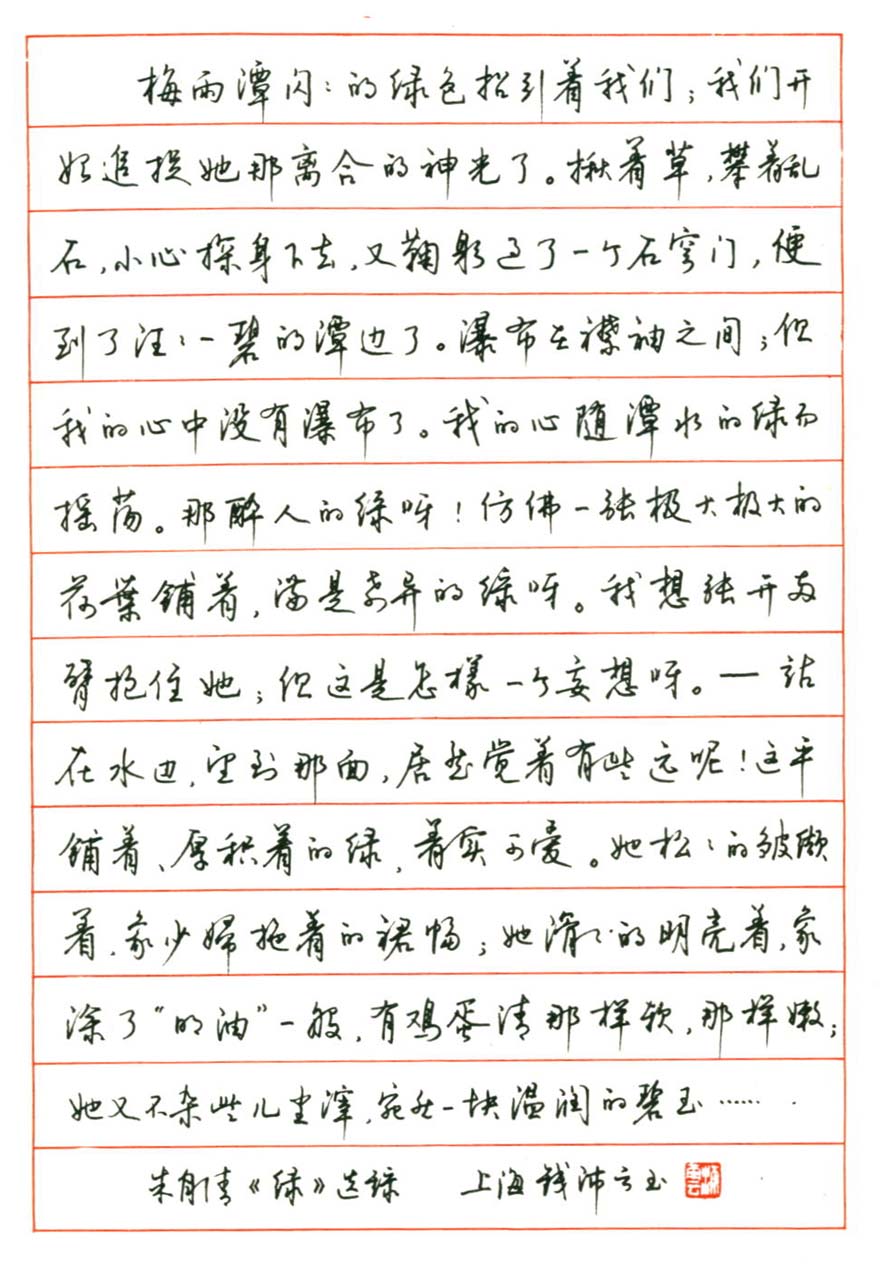 梅雨潭闪：的绿色招引着我们；我们开
始追捉她那离合的神光了。揪着草，攀着乱
石，小心探身下去，又鞠躬过了一个石穹门，便
到了汪：一碧的潭边了。瀑布在襟袖之间；但
我的心中没有瀑布了。我的心随潭水的绿而
摇荡。那醉人的绿呀！仿佛一张极大极大的
荷葉铺着，满是奇异的绿呀。我想张开两
臂抱住她；但这是怎樣一个妄想呀。—站
在水边，望到那面，居然觉着有些远呢！这平
铺着、厚积着的绿，着实可爱。她松：的皱缬
着，象少婦拖着的裙幅；她滑：的明亮着，象
涂了“明油”一般，有鸡蛋清那样软，那样嫩；
她又不杂些儿尘滓，宛然一块温润的碧玉……
朱自清《绿》选录 上海钱沛云书